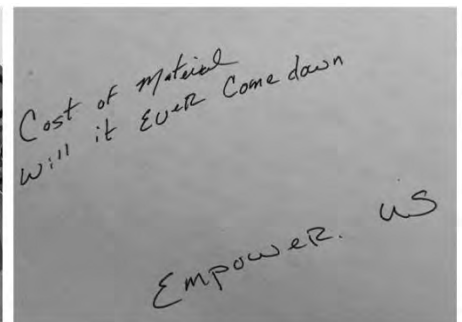 Cost of Material
Will it EVER Come down
Empower. us